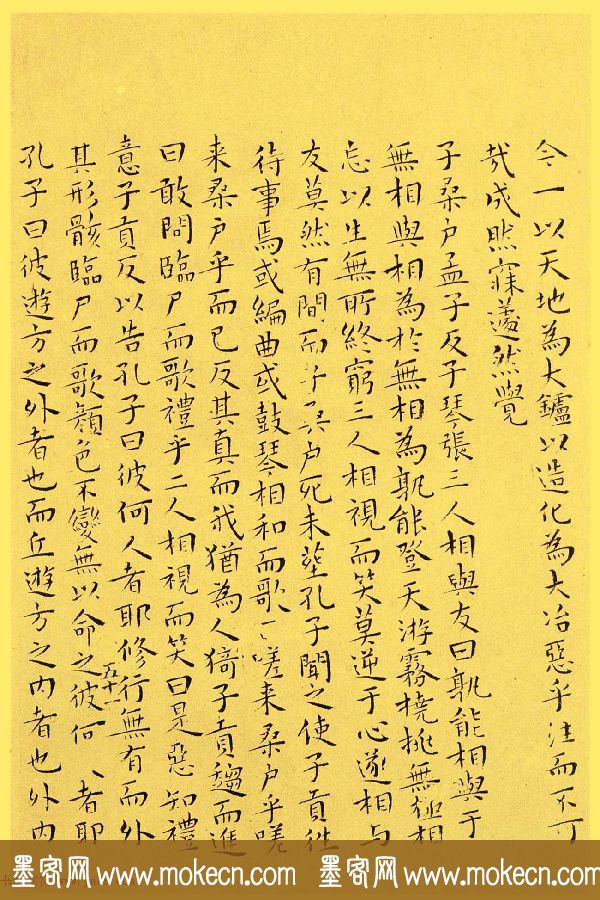 今一以天地為大鑪以造化為大冶惡乎往而不可
哉成然寐蘧然覺
子桑户孟子反子琴張三人相與友曰孰能相與于
無相與相為於無相為孰能登天游霧撓挑無極相
忘以生無所終窮三人相視而笑莫逆于心遂相与
友莫然有間而子桑户死未塟孔子聞之使子貢往
待事焉或編曲或鼓琴相和而歌〻嗟来桑户乎嗟
来桑户乎而已反其真而我猶為人猗子貢趨而進
曰敢問臨尸而歌禮乎二人相視而笑曰是惡知禮
意子貢反以告孔子曰彼何人者耶修行無有而外
其形骸臨尸而歌顔色不變無以命之彼何〻者耶
五十一
孔子曰彼遊方之外者也而丘遊方之内者也外内
墨客网 www.mokecn.com 墨客网 www.mokecn.com